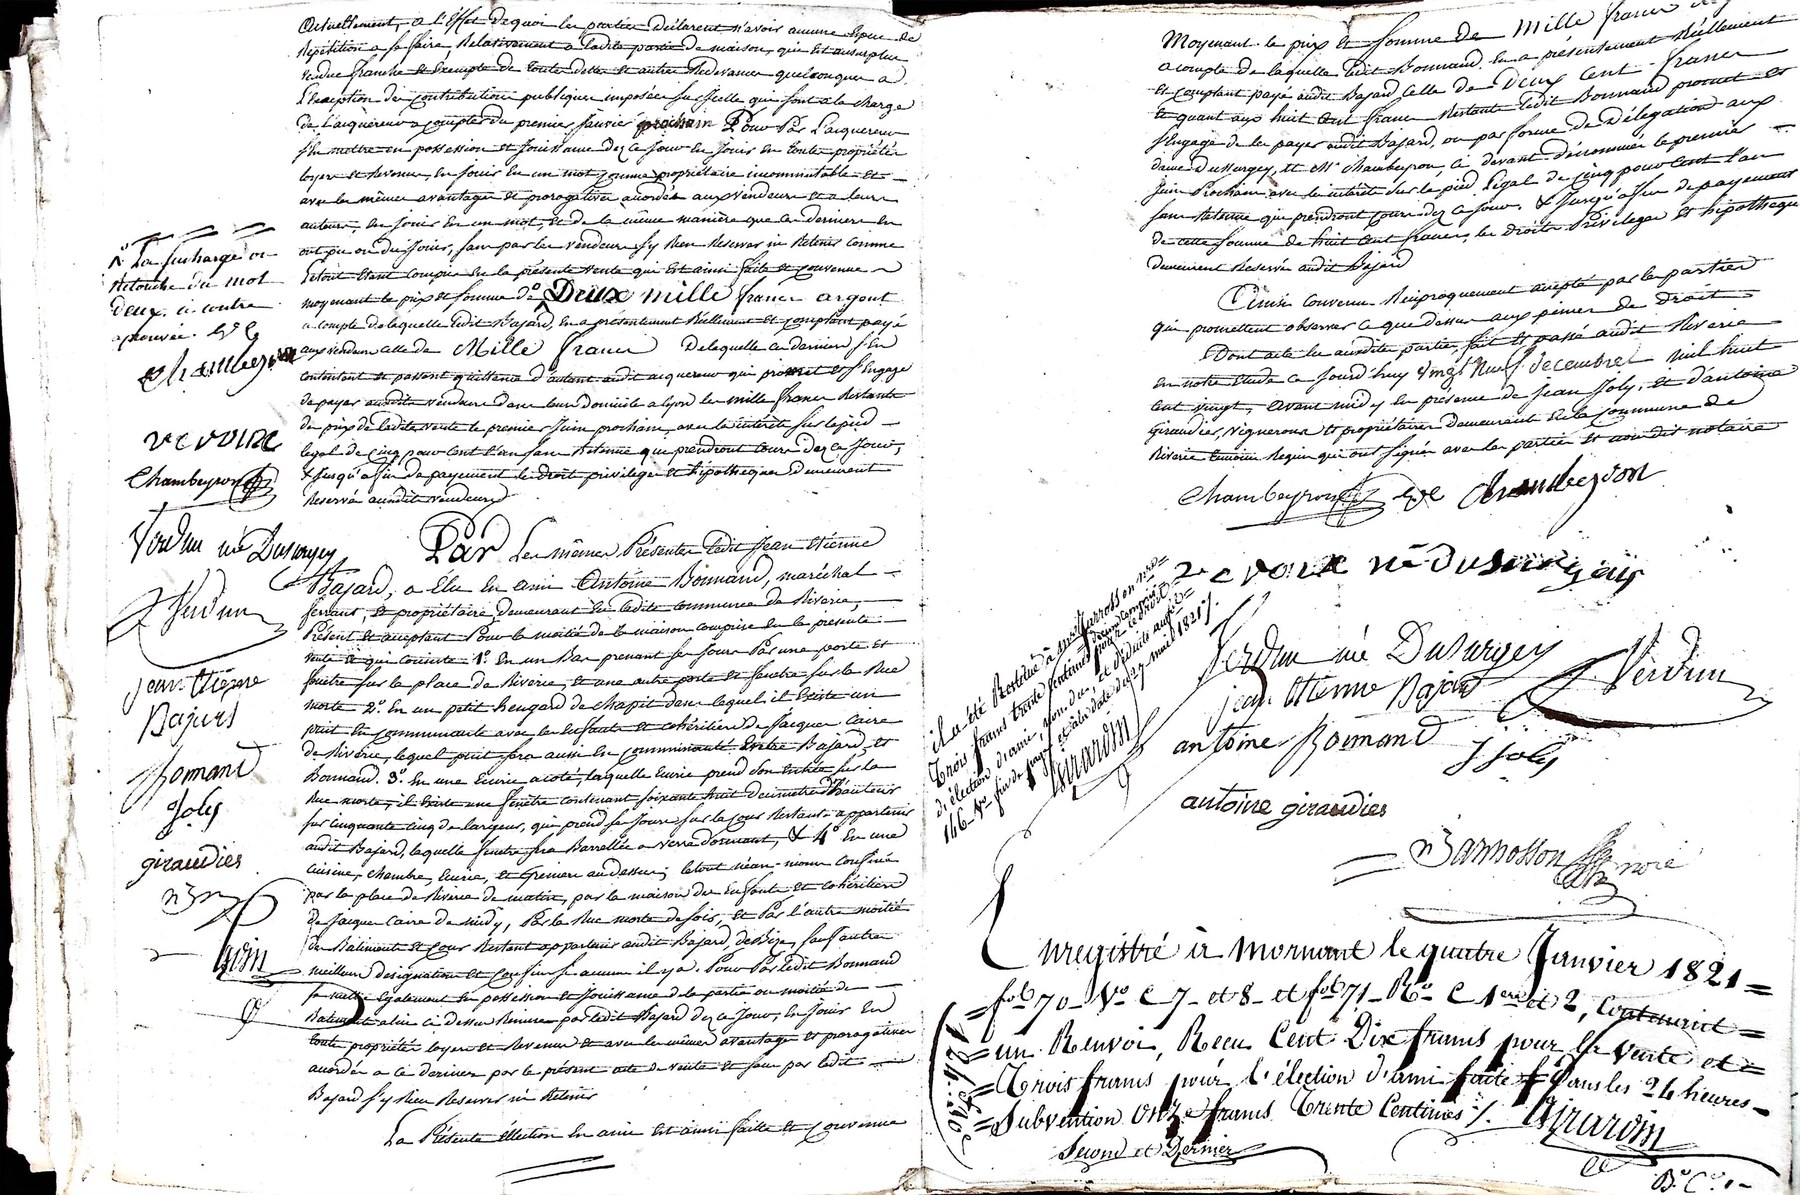 Actuellement, a l'effet de quoi les parties déclarent n'avoir aucune espece de
Répétition a se faire Relativement a ladite partie de maison, qui est ausurplus
vendue franche et Exempte de toute dettes et autres Redevances quelconques a
L'exception des contributions publiques imposées sur Icelle qui sont a la charge
de L'acquereur a compter du premier Janvier prochain Pour Par L'acquereur
s'En mettre en possession et Jouissance dez ce Jour En Jouir En toute propriété
loyers et Revenus, en Jouir En un mot comme propriétaire incommutable et
avec les mêmes avantages et prorogatives accordés aux vendeurs et a leurs
auteurs, En Jouir En un mot, et de la même manière que ce derniers En
ont pu ou du Jouir, sans par les vendeurs s'y Rien Reserver ni Retenir comme
Letout étant compris En la présente vente qui Est ainsi faite et convenue
moyenant le prix et somme de Deux mille francs argent
a compte delaquelle ledit Bajard, En a présentement Réellement et comptant payé
aux vendeurs celle de Mille francs Delaquelle ce derniers s'En
contentent et passent quittance d'autant audit acquereur qui promet et s'Engage
de payer auxdits vendeurs dans leur domicile a lyon les mille francs Restants
du prix de ladite vente le premier Juin prochain, avec le intérêts sur le pied
legal de cinq pour cent l'an sans Retenue qui prendront cours dez ce Jour,
& Jusqu'a fin de payement les droits privileges et hipotheques Demeurent
Reservés auxdits vendeurs
La surcharge ou
Retouche du mot
deux ci contre
approuvée
Chambeyron
ve voire
Chambeyron
Verdun né Dusurgey
Verdun
Jean Etienne
Bajard
Bonnand
Joly
giraudier
Par Les mêmes Présentes Ledit Jean Etienne
Bajard, a Elu En ami Antoine Bonnand, maréchal
ferrant, et propriétaire demeurant En ladite commune de Riverie,
Présent et acceptant Pour la moitié de la maison comprise En la presente
vente et qui consiste 1° En un Bas prenant ses Jours Par une porte et
fenêtre sur la place de Riverie, et une autre porte et fenêtre sur la Rue
morte 2° En un petit hengard de chapit dans lequel il Existe un
puit En communauté avec les Enfants et cohéritiers de Jacques Caire
de Riverie, lequel puit sera aussi En communauté Entre Bajard, et
Bonnand. 3° En une Ecurie acoté, laquelle Ecurie prend son Entrée sur la
Rue morte, il Existe une fenêtre contenant soixante huit decimetres d'hauteur
sur cinquante cinq de largeur, qui prend ses Jours sur la cour Restante appartenir
audit Bajard, laquelle fenetre sera Barrellée a verre dormant, & 4° En une
cuisine, chambre, Ecurie, et Greniers au dessus, le tout néan-moins confiné
par la place de Riverie de matin, par la maison des Enfants et cohéritiers
de Jacques Caire de midy, Par la Rue morte de soir, et Par l'autre moitié
des Batiments et cour Restant appartenir audit Bajard, de Bize, sauf autres
meilleurs designations et confins si aucun il y a. Pour Par ledit Bonnand
se mettre Egalement En possession et Jouissance de la partie ou moitié de
Batiment a lui ci dessus Remise par ledit Bajard dez ce Jour, En Jouir En
toute propriété loyers et Revenus et avec les mêmes avantages et prorogatives
accordés a ce dernier par le présent acte de vente et sans par ledit
Bajard s'y Rien Reserver ni Retenir
La Présente élection En ami est ainsi faite et convenue
Moyenant le prix et somme de Mille francs
acompte de laquelle ledit Bonnand En a présentement Réellement
et comptant payé audit Bajard Celle de Deux Cent francs
et quant aux huit Cent francs Restants ledit Bonnand promet et
s'Engage de les payer audit Bajard, ou par forme de Délégation aux
dame Dusurgey, et Mr Chambeyron, ci devant dénommés le premier
Juin Prochain avec les intérêts sur le pied Légal de cinq pour Cent l'an
sans Retenue qui prendront cours dez ce Jour. & Jusqu'a fin de payement
de cette somme de huit Cent francs, les droits Privileges et hipotheques
demeurent Reservés audit Bajard
Ainsi convenu Réciproquement accepté par les parties
qui promettent observer ce que dessus aux peines de Droit
Dont acte les auxdites parties, fait et passé audit Riverie
en notre Etude ce jourd'huy vingt Neuf decembre mil huit
cent vingt, avant midy En présence de Jean Joly, et d'antoine
Giraudier, vignerons et propriétaires demeurant En la Commune de
Riverie temoins Requis qui ont signés avec les parties et nous dit notaire
Chambeyron Chambeyron
ve voire né dusurgey
Verdun né Dusurgey
Verdun
jean Etienne Bajard
antoine Bonnand
j joly
antoine giraudier
Girardin
Enregistré à Mornant le quatre Janvier 1821
fol 70 Vo C 7 et 8 et fol 71 Ro C 1ere et 2, Contenant
un Renvoi, Recu Cent Dix francs pour la vente et
Trois francs pour l'élection d'ami faite dans les 24 heures
Subvention onze francs Trente Centimes ./. Girardin
Second et Dernier
124.30c